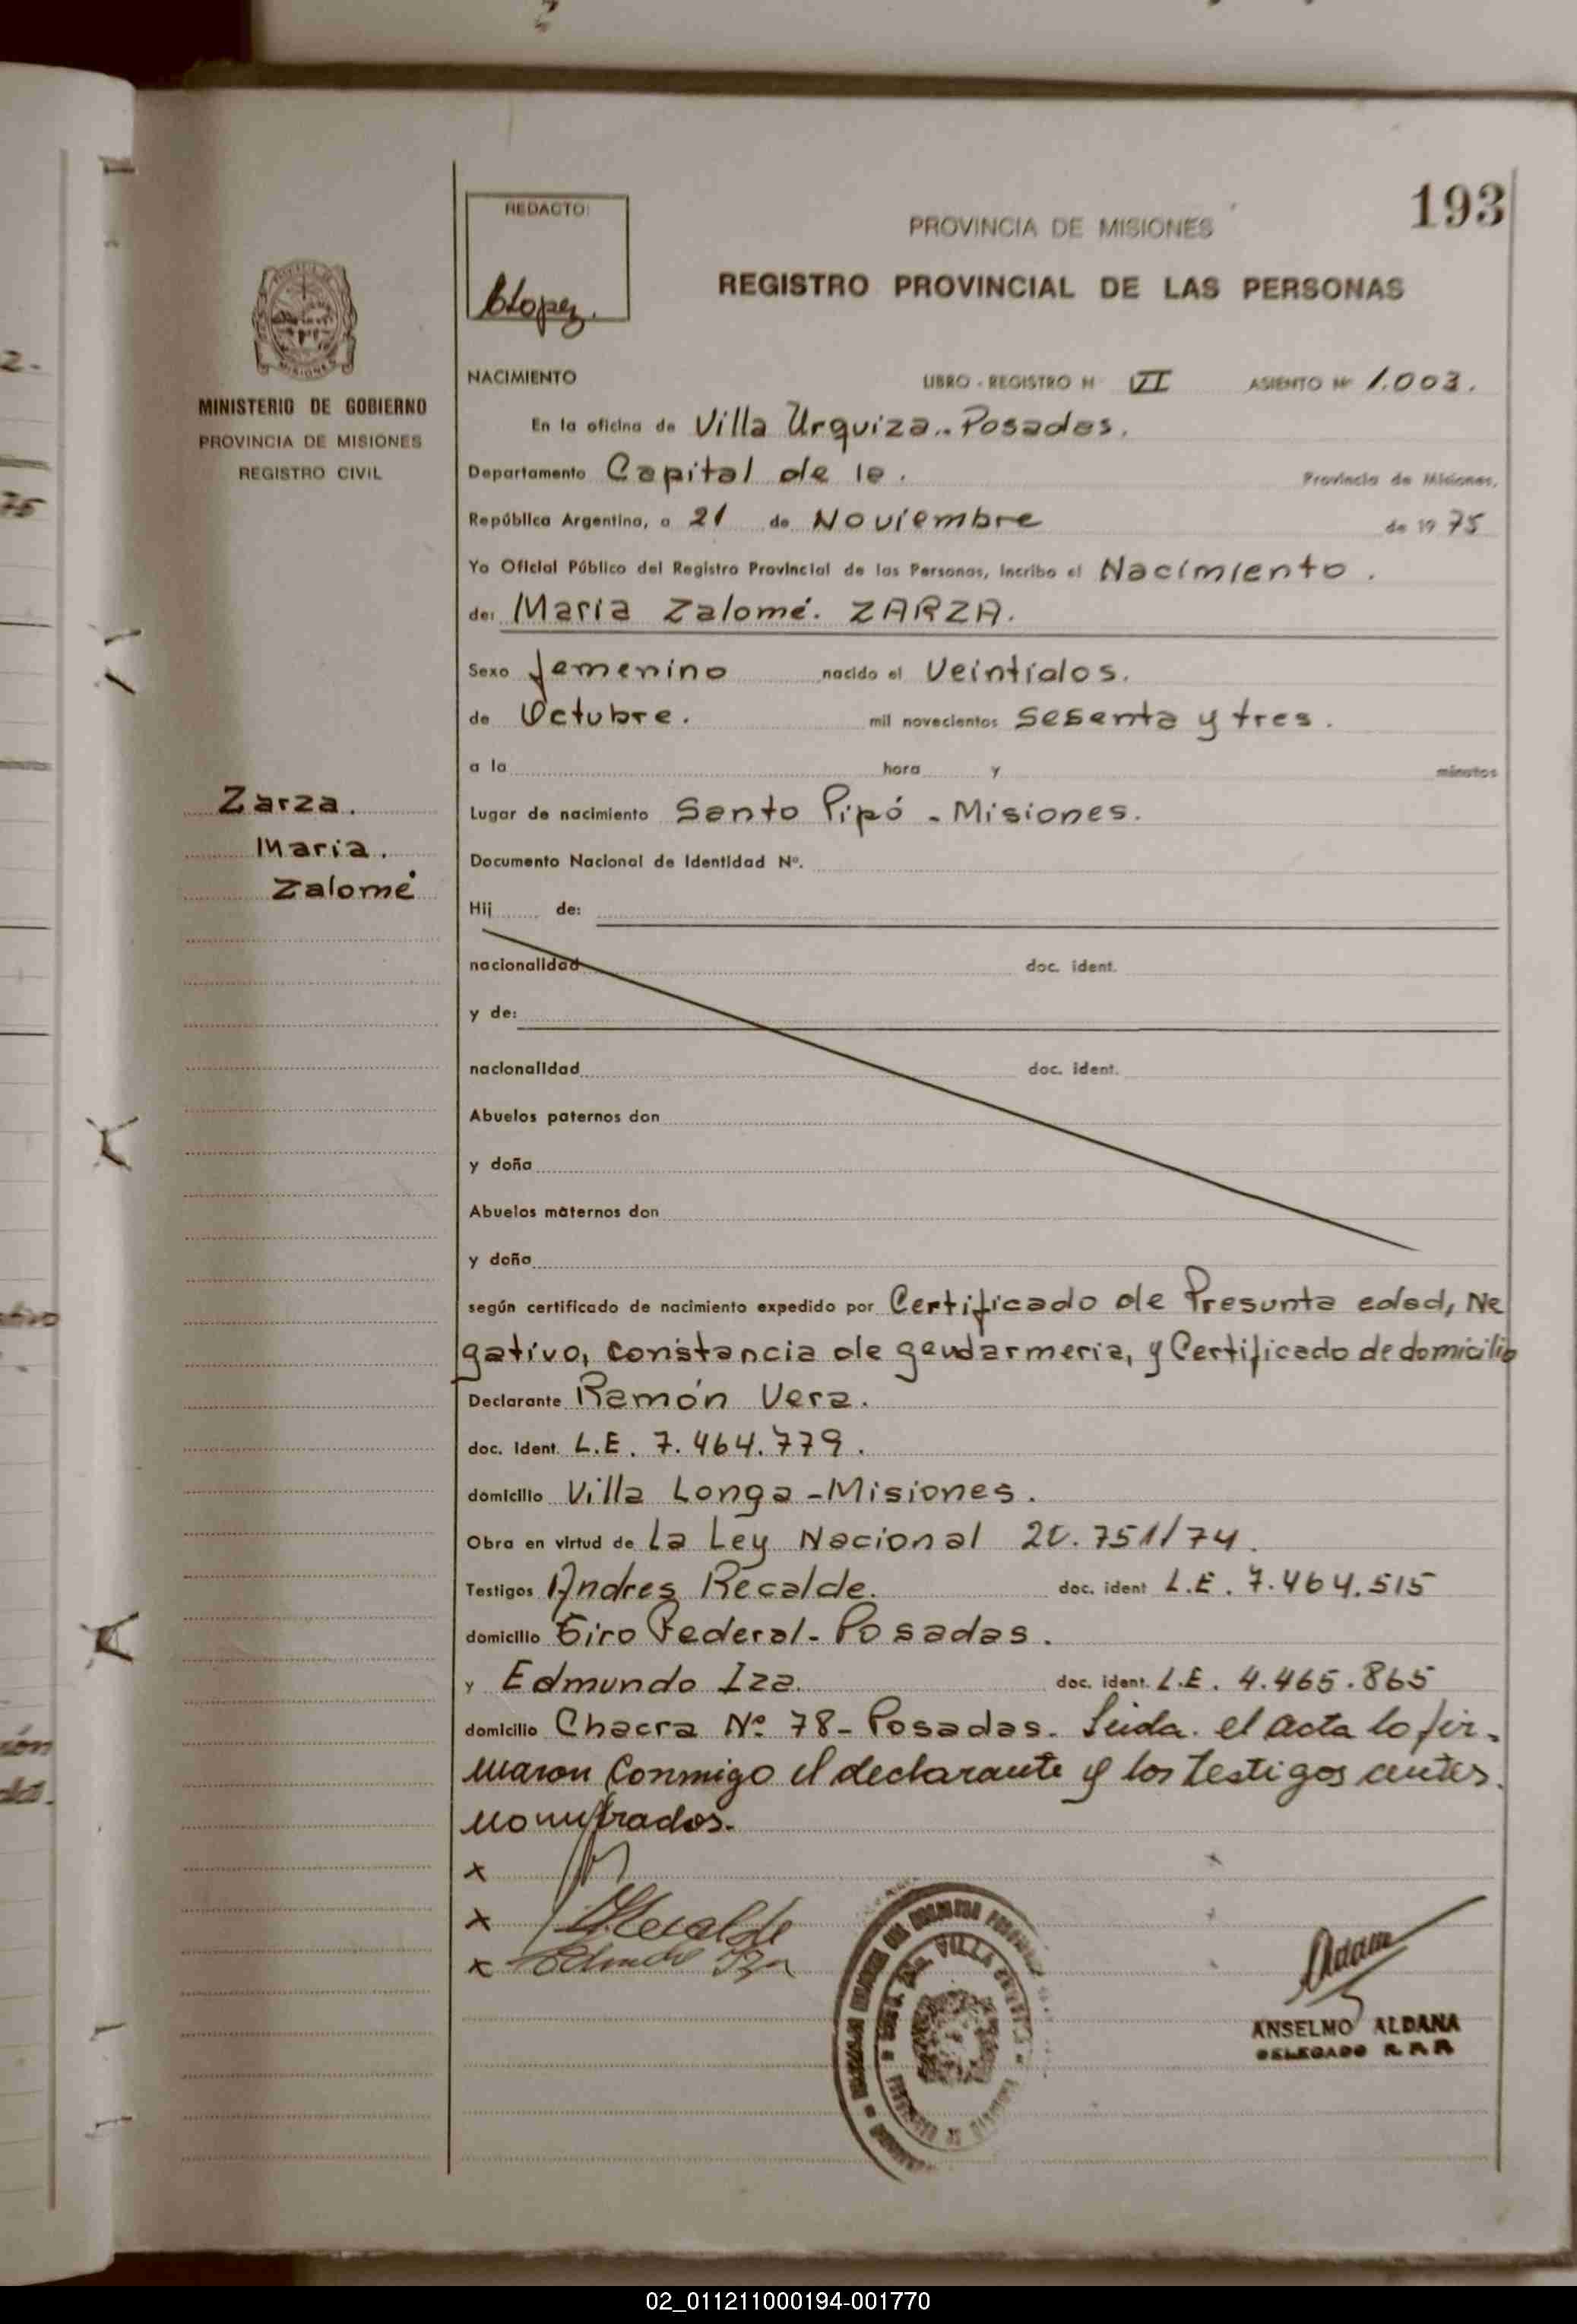 193
REDACTO:
PROVINCIA DE MISIONES
REGISTRO PROVINCIAL DE LAS PERSONAS
MINISTERIO DE GOBIERNO
PROVINCIA DE MISIONES
REGISTRO CIVIL
Zarza.
Maria.
Zalomé
NACIMIENTO LIBRO - REGISTRO Nº VI ASIENTO Nº 1.003.
En la oficina de Villa Urquiza.. Posadas.
Departamento Capital de la. Provincia de Misiones,
República Argentina, a 21 de Noviembre de 19 75
Yo Oficial Público del Registro Provincial de las Personas, incribo el Nacimiento.
de: Maria Zalomé. ZARZA.
Sexo femenino nacido el Veintidos.
de Octubre. mil novecientos Sesenta y tres.
a la hora y minutos
Lugar de nacimiento Santo Pipó - Misiones.
Documento Nacional de Identidad Nº.
Hij de:
nacionalidad doc. ident.
y de:
nacionalidad doc. ident.
Abuelos paternos don
y doña
Abuelos maternos don
y doña
según certificado de nacimiento expedido por Certificado de Presunta edad, Ne
gativo, constancia de gendarmeria, y Certificado de domicilio
Declarante Ramón Vera.
doc. ident. L.E. 7.464.779.
domicilio Villa Longa - Misiones.
Obra en virtud de La Ley Nacional 20.751/74.
Testigos Andres Recalde. doc. ident L.E. 7.464.515
domicilio Tiro Federal - Posadas.
y Edmundo Iza. doc. ident. L.E. 4.465.865
domicilio Chacra Nº 78 - Posadas. Leida el acta lo fir-
maron conmigo el declarante y los testigos antes
nombrados.
x
x Recalde
x Edmundo Iza
VILLA
ANSELMO ALDANA
DELEGADO R.P.P.
02_011211000194-001770